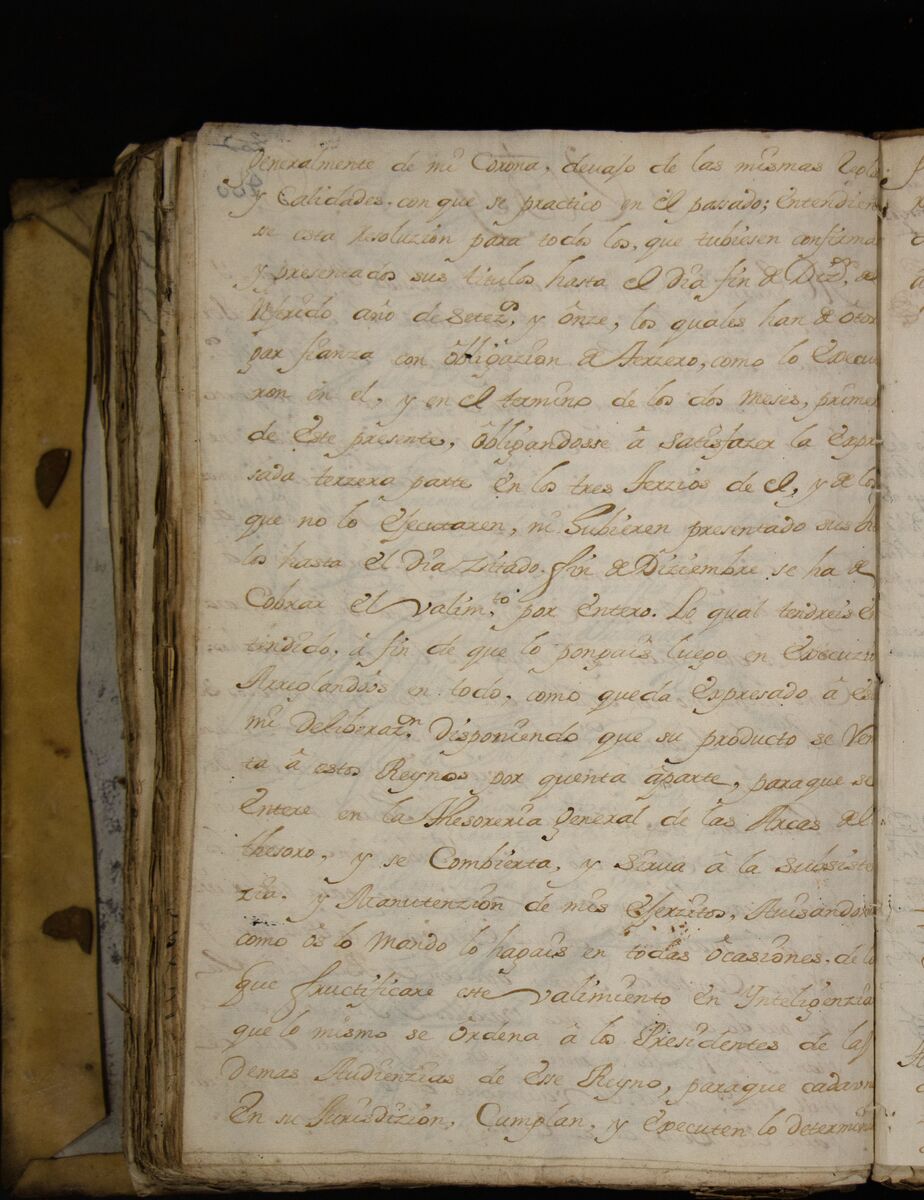 Generalmente de mi Corona, devajo de las mismas
y Calidades, con que se practico en el pasado; entendien
se esta resoluzion para todos los, que tubiesen confirma
y presentados sus titulos hasta el dia fin de Diz.re, de
referido año de setez.s, y onze, los quales han de otor
gar fianza con obligazion de terzero, como lo execu
ron en el, y en el termino de los dos meses, primer
de este presente, obligandosse â satisfazer la expre
sada terzera parte en los tres terzios de el, y de los
que no lo efecutaren, ni hubieren presentado sus ti
los hasta el dia zitado fin de Diziembre se ha de
Cobrar el valim.to por entero. Lo qual tendreis en
tendido, â fin de que lo pongais luego en execuzn
Arreglandoos en todo, como queda expresado â es
mi deliberaz.n Disponiendo que su producto se Ven
ta â estos Reynos por quenta âparte, para que se
entere en la thesoreria general de las Arcas del
thesoro, y se Combierta, y sirua â la subsiste
zia, y Manutenzion de mis exerzitos, Auisandome
como os lo mando lo hagais en todas ocasiones, de lo
que fructificare este valimiento en Inteligenzia
que lo mismo se ordena â los Presidentes de las
demas Audienzias de ese Reyno, para que cadauno
en su Jurisdizion, Cumplan, y executen lo determina